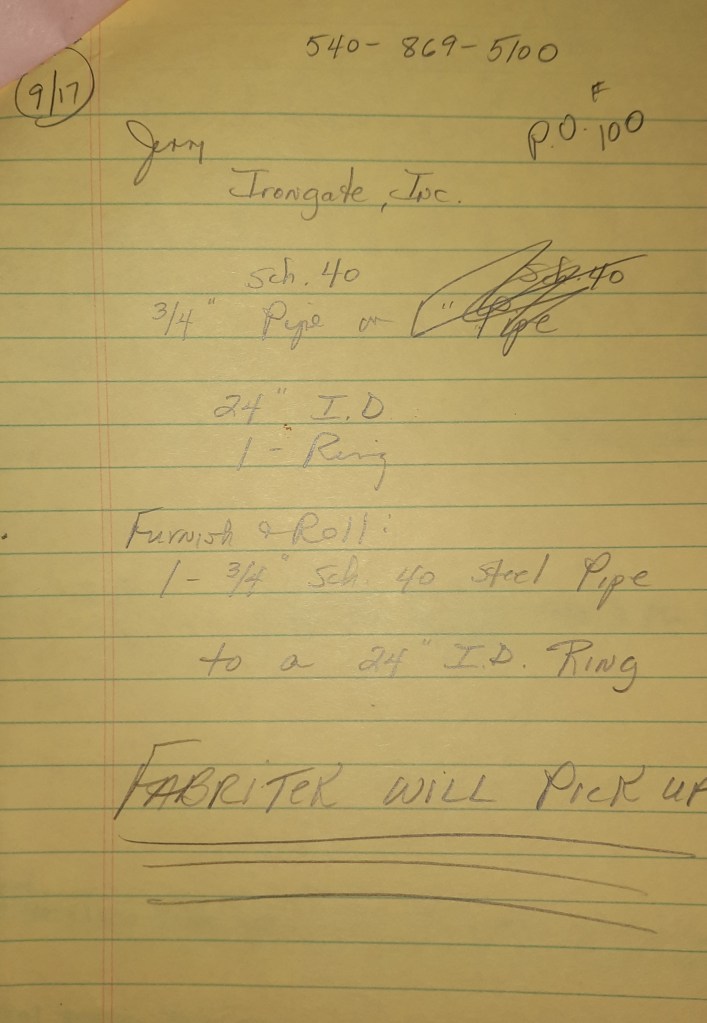 540-869-5100
9/17
F
P.O. 100
Jerry
Irongate, Inc.
Sch. 40 Sch. 40
3/4" Pipe or " Pipe
24" I.D
1 - Ring
Furnish & Roll:
1 - 3/4" Sch. 40 Steel Pipe
to a 24" I.D. Ring
FABRITEK WILL PICK UP